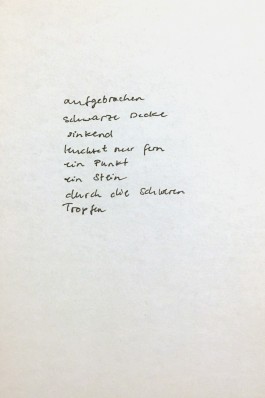 aufgebrochen
schwarze Decke
sinkend
leuchtet nur fern
ein Punkt
ein Stein
durch die schweren
Tropfen